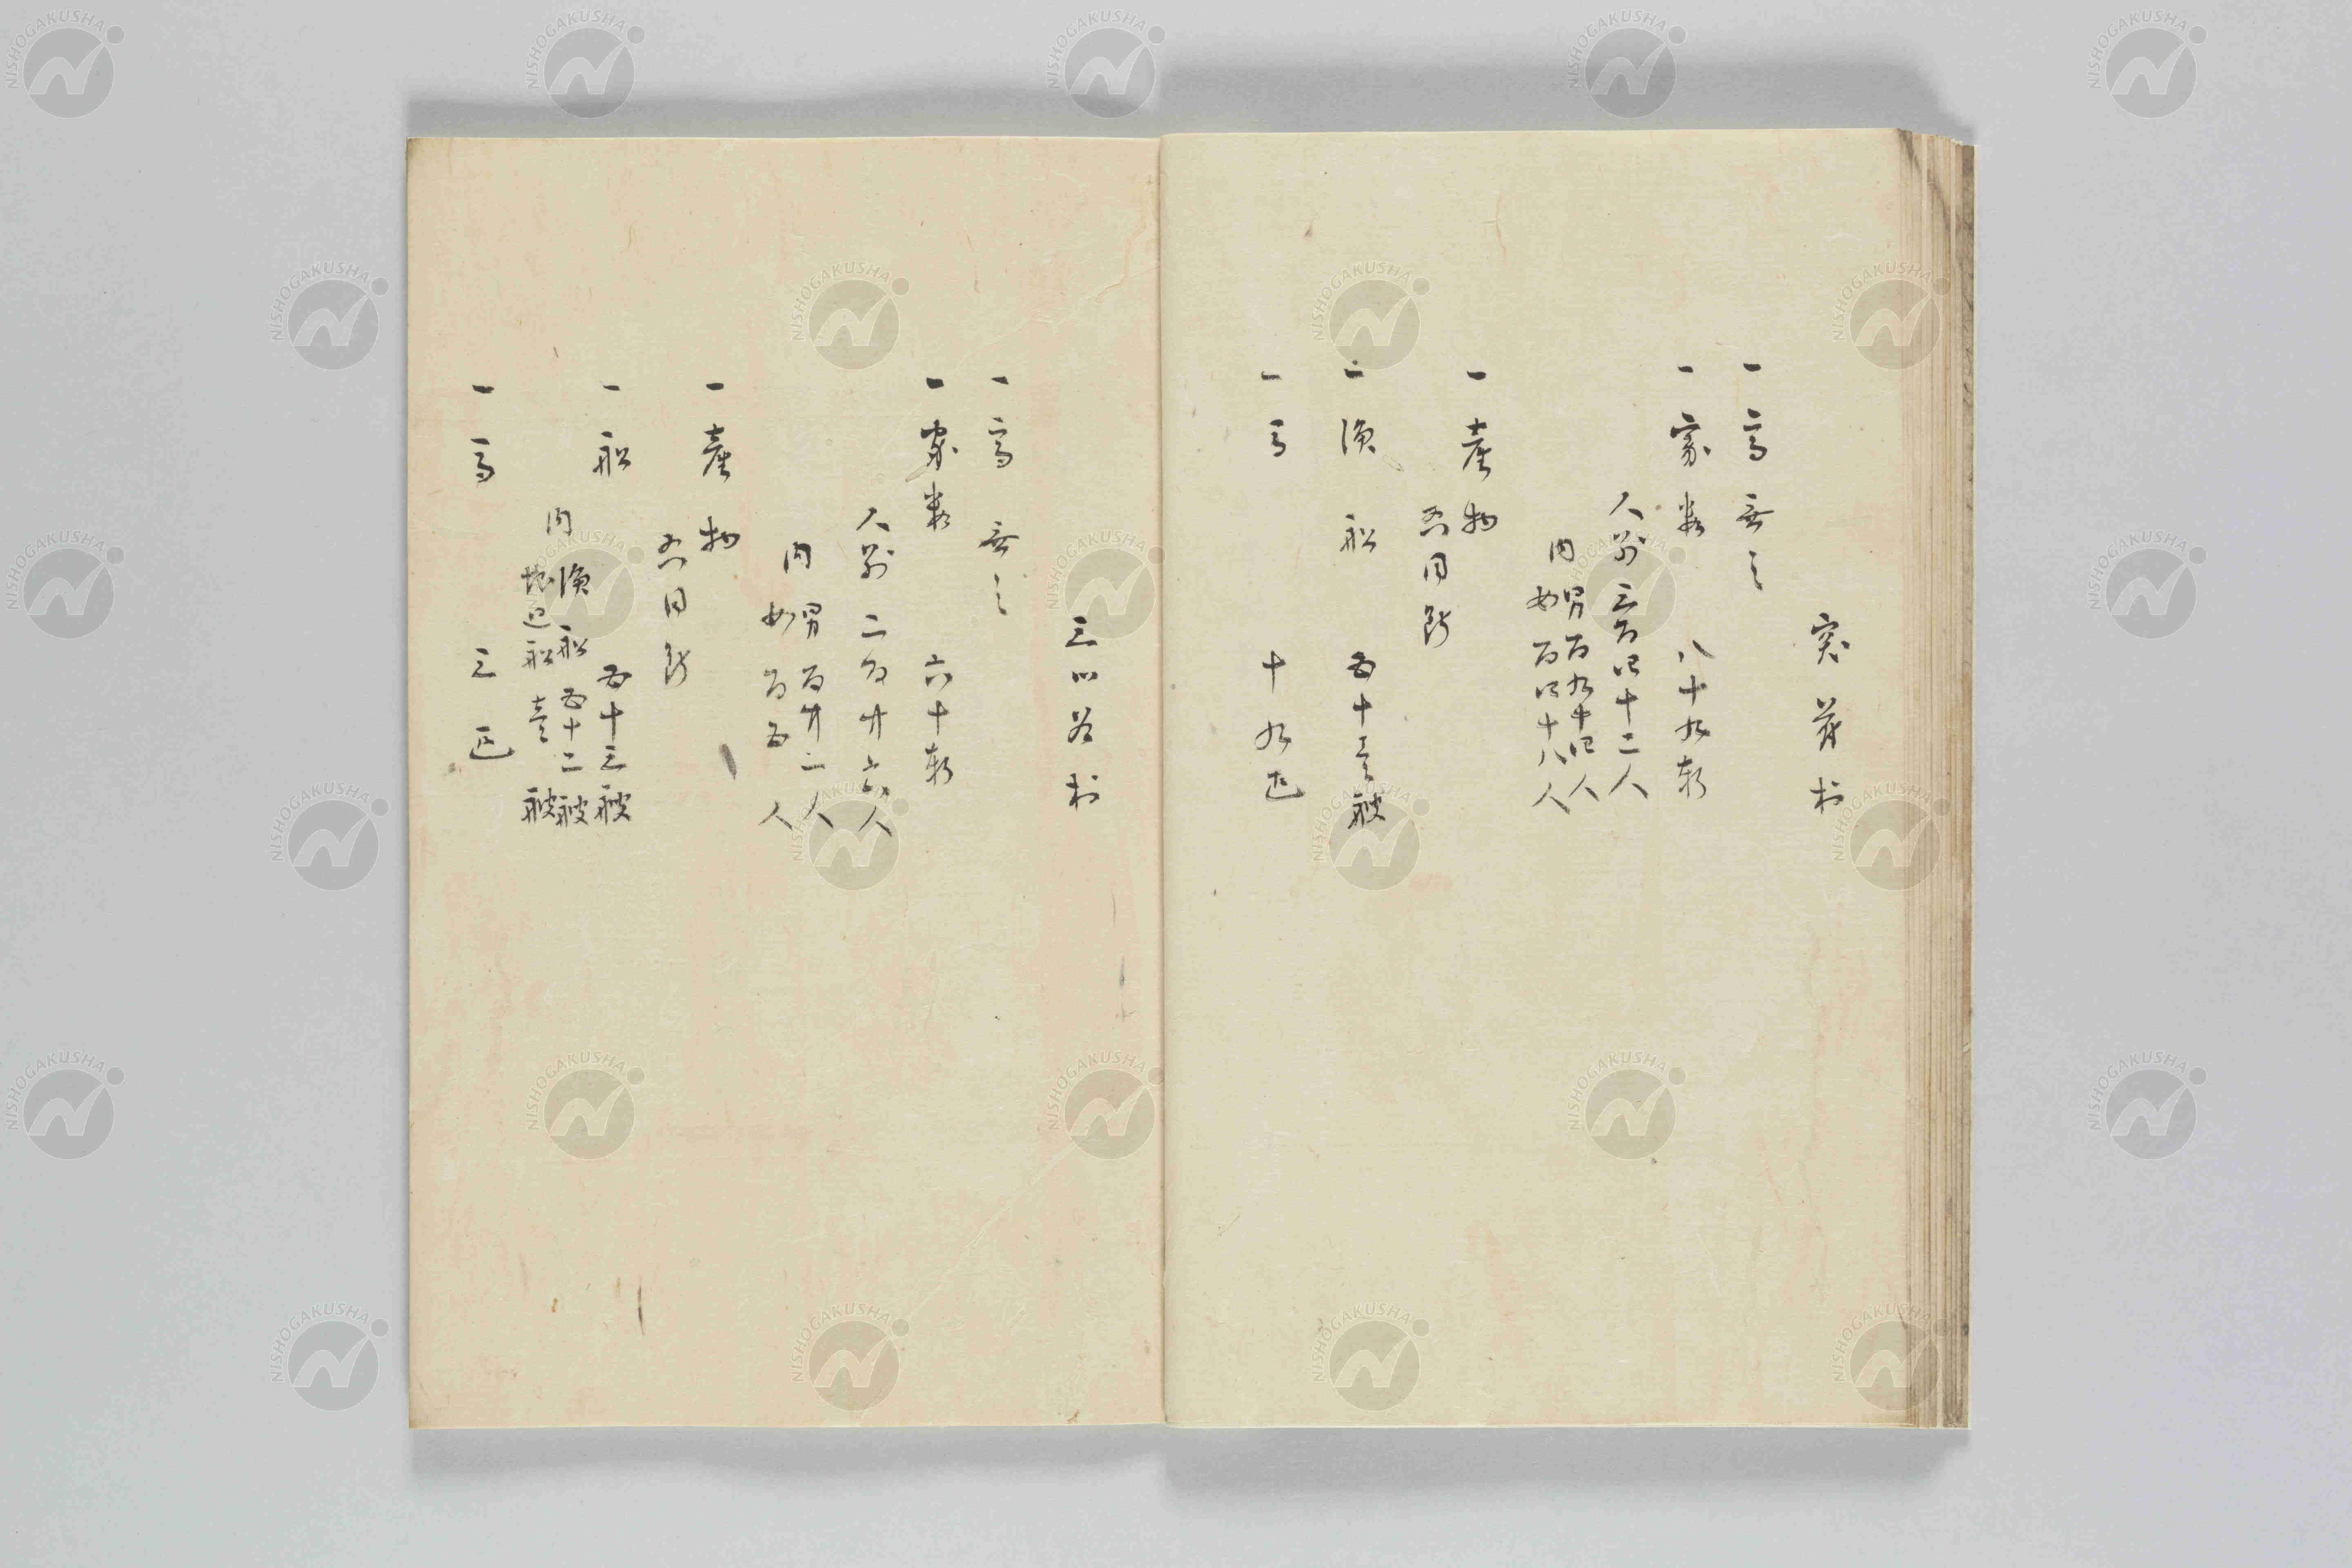 突苻村
一高無之
一家数 八十九軒
人別三百四十二人
内 男百九十四人
女百四十八人
一産物
右同断
一漁船 五十壱艘
一馬 十九疋
三ツ谷村
一高無之
一家数 六十軒
人別二百廿六人
内 男百廿二人
女百五人
一産物
右同断
一船 五十三艘
内 漁船五十二艘
地廻船壱艘
一馬 三疋
NISHOGAKUSHA